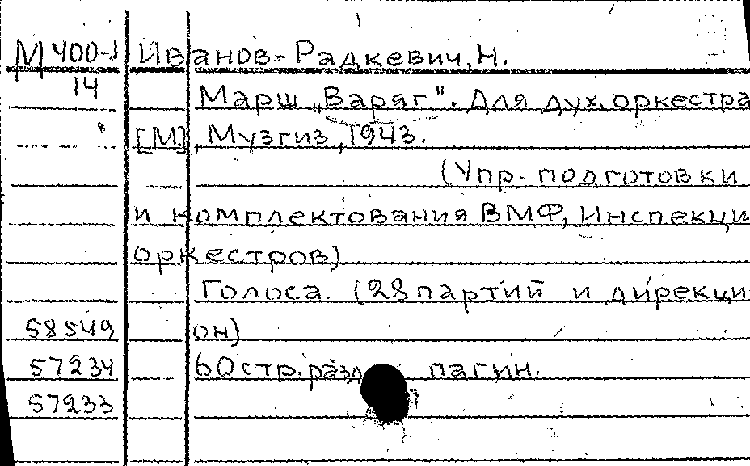 М 400-1 Иванов-Радкевич, Н.
14 Марш „Варяг". Для дух. оркестра
[М], Музгиз, 1943.
(Упр. подготовки
и комплектования ВМФ, Инспекци
оркестров)
Голоса. (28 партий и дирекци
58549 он)
57234 60 стр. разд. пагин.
57233